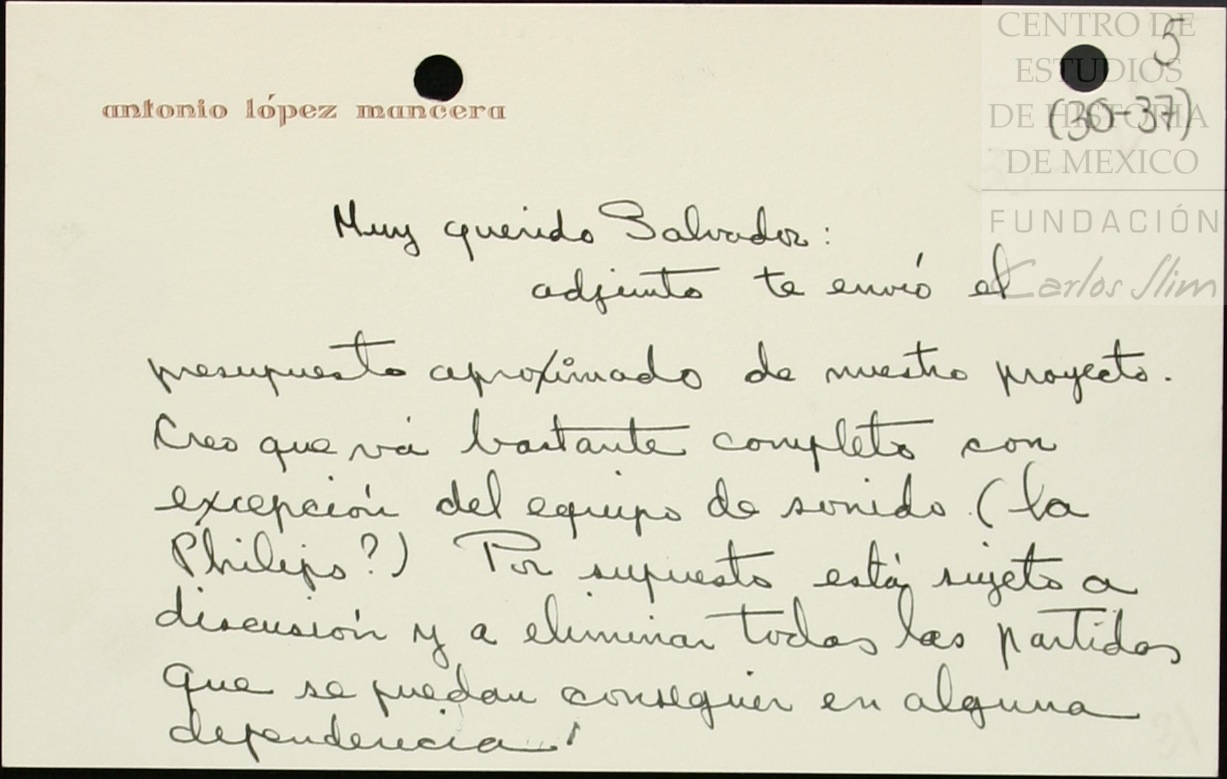 CENTRO DE
ESTUDIOS
DE HISTORIA
DE MEXICO
FUNDACIÓN
Carlos Slim
5
(30-37)
antonio lópez mancera
Muy querido Salvador:
adjunto te envió el
presupuesto aproximado de nuestro proyecto.
Creo que vá bastante completo con
excepción del equipo de sonido (la
Philips?) Por supuesto está sujeto a
discusión y a eliminar todas las partidas
que se puedan conseguir en alguna
dependencia!